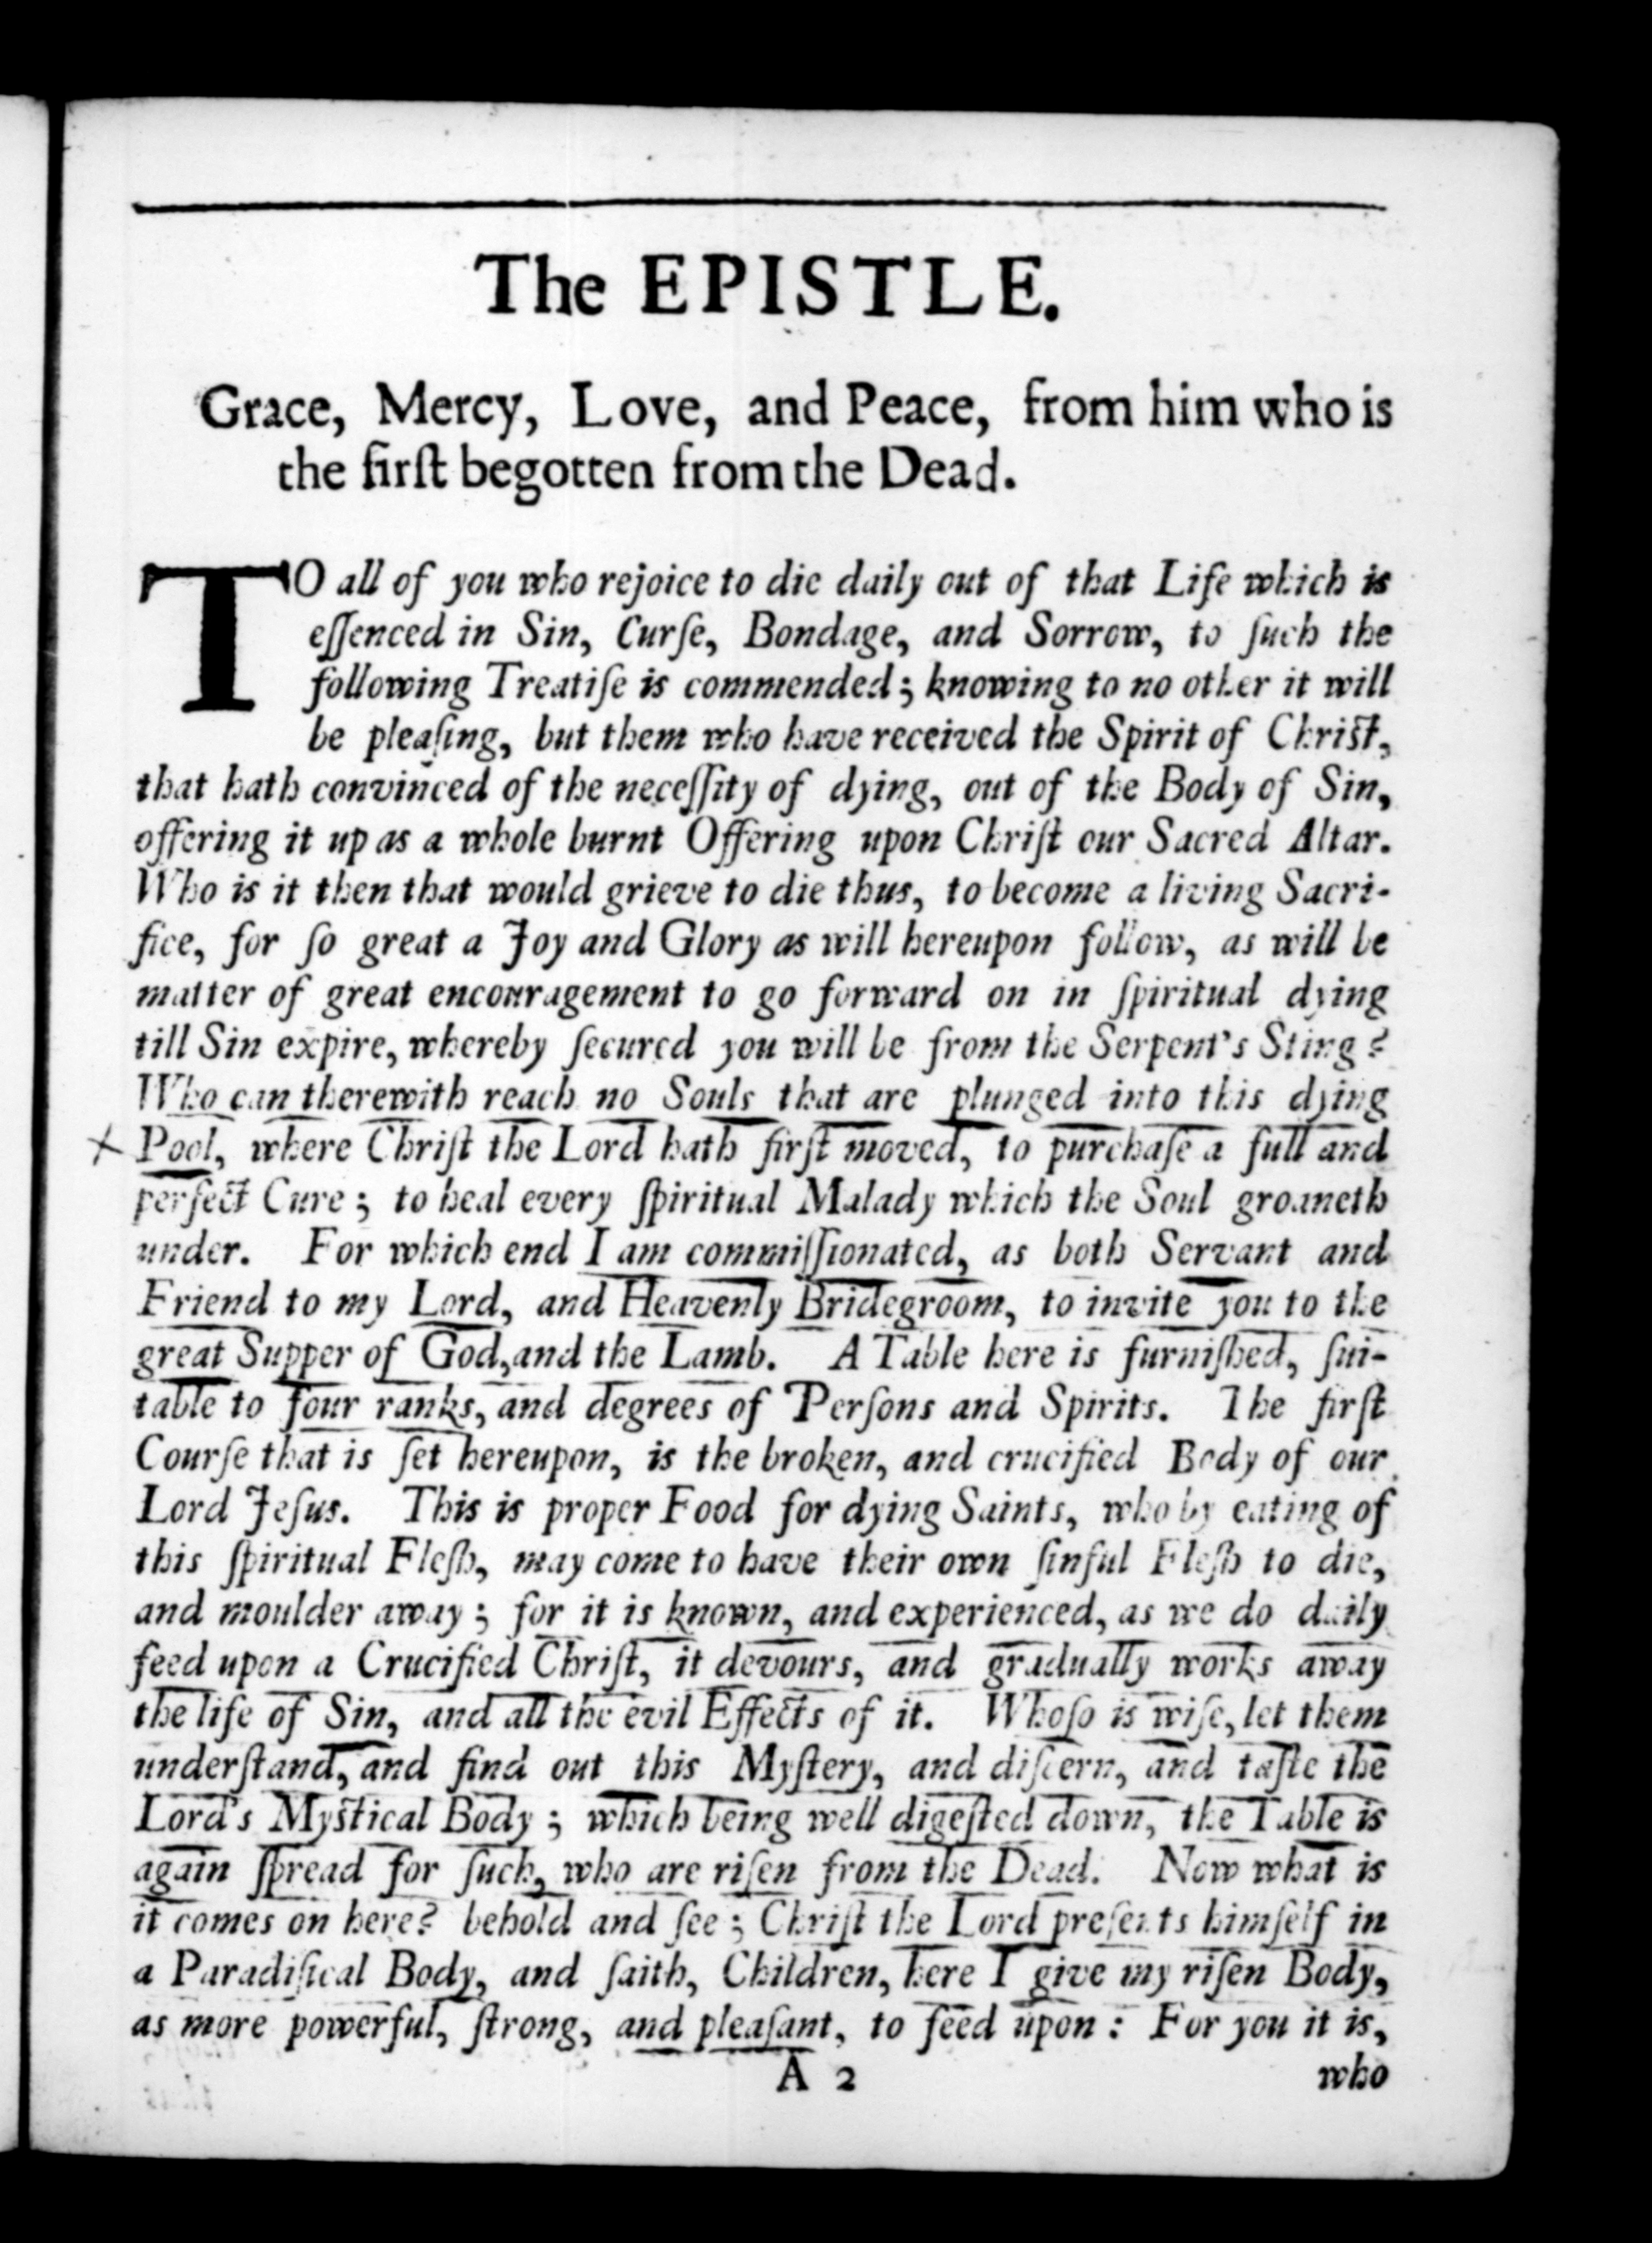 The EPISTLE.
Grace, Mercy, Love, and Peace, from him who is
the firſt begotten from the Dead.
TO all of you who rejoice to die daily out of that Life which is
eſſenced in Sin, Curſe, Bondage, and Sorrow, to ſuch the
following Treatiſe is commended; knowing to no other it will
be pleaſing, but them who have received the Spirit of Chriſt,
that hath convinced of the neceſſity of dying, out of the Body of Sin,
offering it up as a whole burnt Offering upon Chriſt our Sacred Altar.
Who is it then that would grieve to die thus, to become a living Sacri-
fice, for ſo great a Joy and Glory as will hereupon follow, as will be
matter of great encouragement to go forward on in ſpiritual dying
till Sin expire, whereby ſecured you will be from the Serpent's Sting?
Who can therewith reach no Souls that are plunged into this dying
Pool, where Chriſt the Lord hath firſt moved, to purchaſe a full and
perfect Cure; to heal every ſpiritual Malady which the Soul groaneth
under. For which end I am commiſſionated, as both Servant and
Friend to my Lord, and Heavenly Bridegroom, to invite you to the
great Supper of God, and the Lamb. A Table here is furniſhed, ſui-
table to four ranks, and degrees of Perſons and Spirits. The firſt
Courſe that is ſet hereupon, is the broken, and crucified Body of our
Lord Jeſus. This is proper Food for dying Saints, who by eating of
this ſpiritual Fleſh, may come to have their own ſinful Fleſh to die,
and moulder away; for it is known, and experienced, as we do daily
feed upon a Crucified Chriſt, it devours, and gradually works away
the life of Sin, and all the evil Effects of it. Whoſo is wiſe, let them
underſtand, and find out this Myſtery, and diſcern, and taſte the
Lord's Myſtical Body; which being well digeſted down, the Table is
again ſpread for ſuch, who are riſen from the Dead. Now what is
it comes on here? behold and ſee; Chriſt the Lord preſents himſelf in
a Paradiſical Body, and ſaith, Children, here I give my riſen Body,
as more powerful, ſtrong, and pleaſant, to feed upon: For you it is,
A 2 who